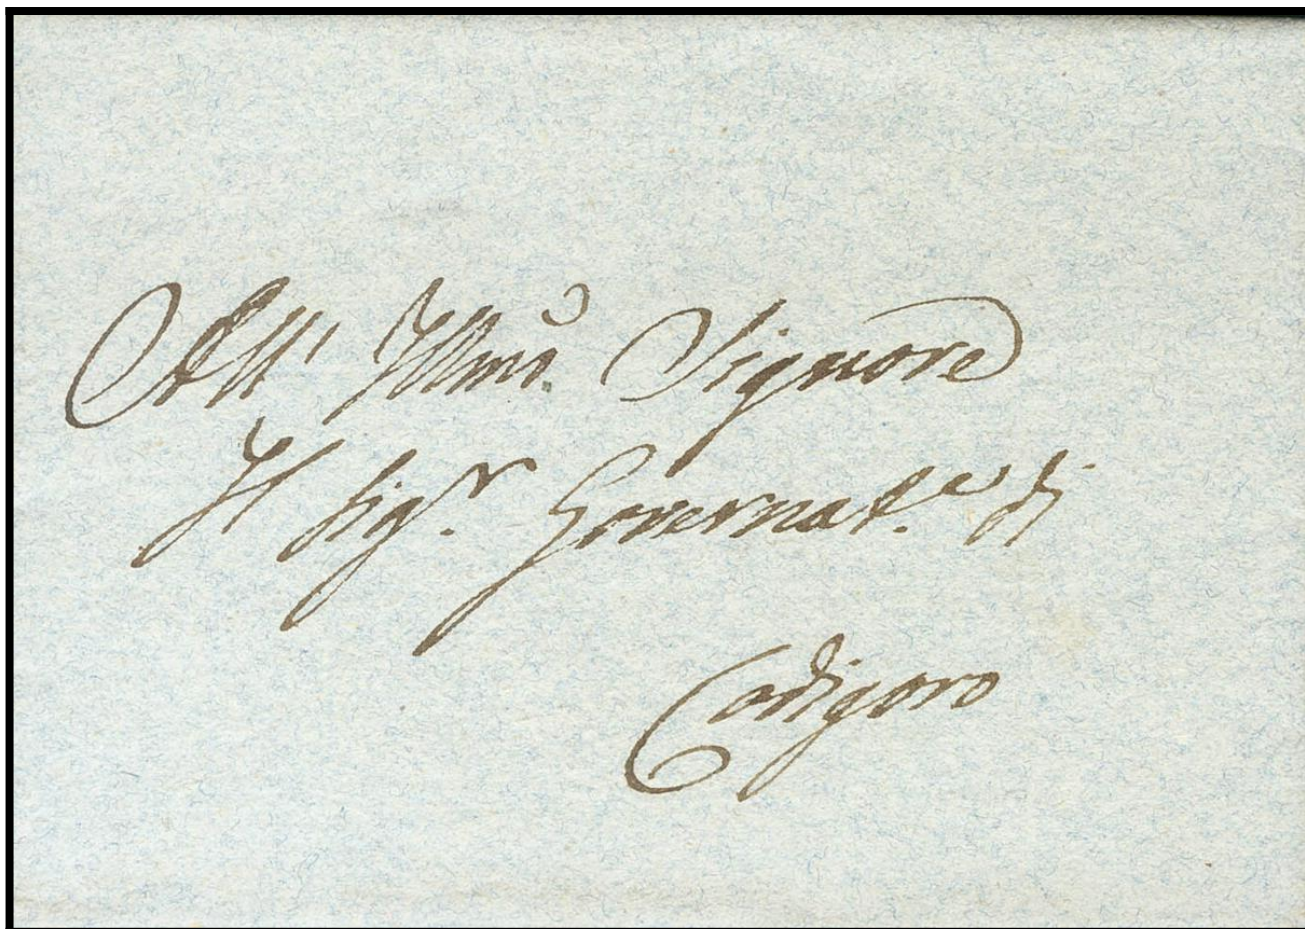 All' Illmo. Signore
Il Sigr. Governat.e di
Codigoro